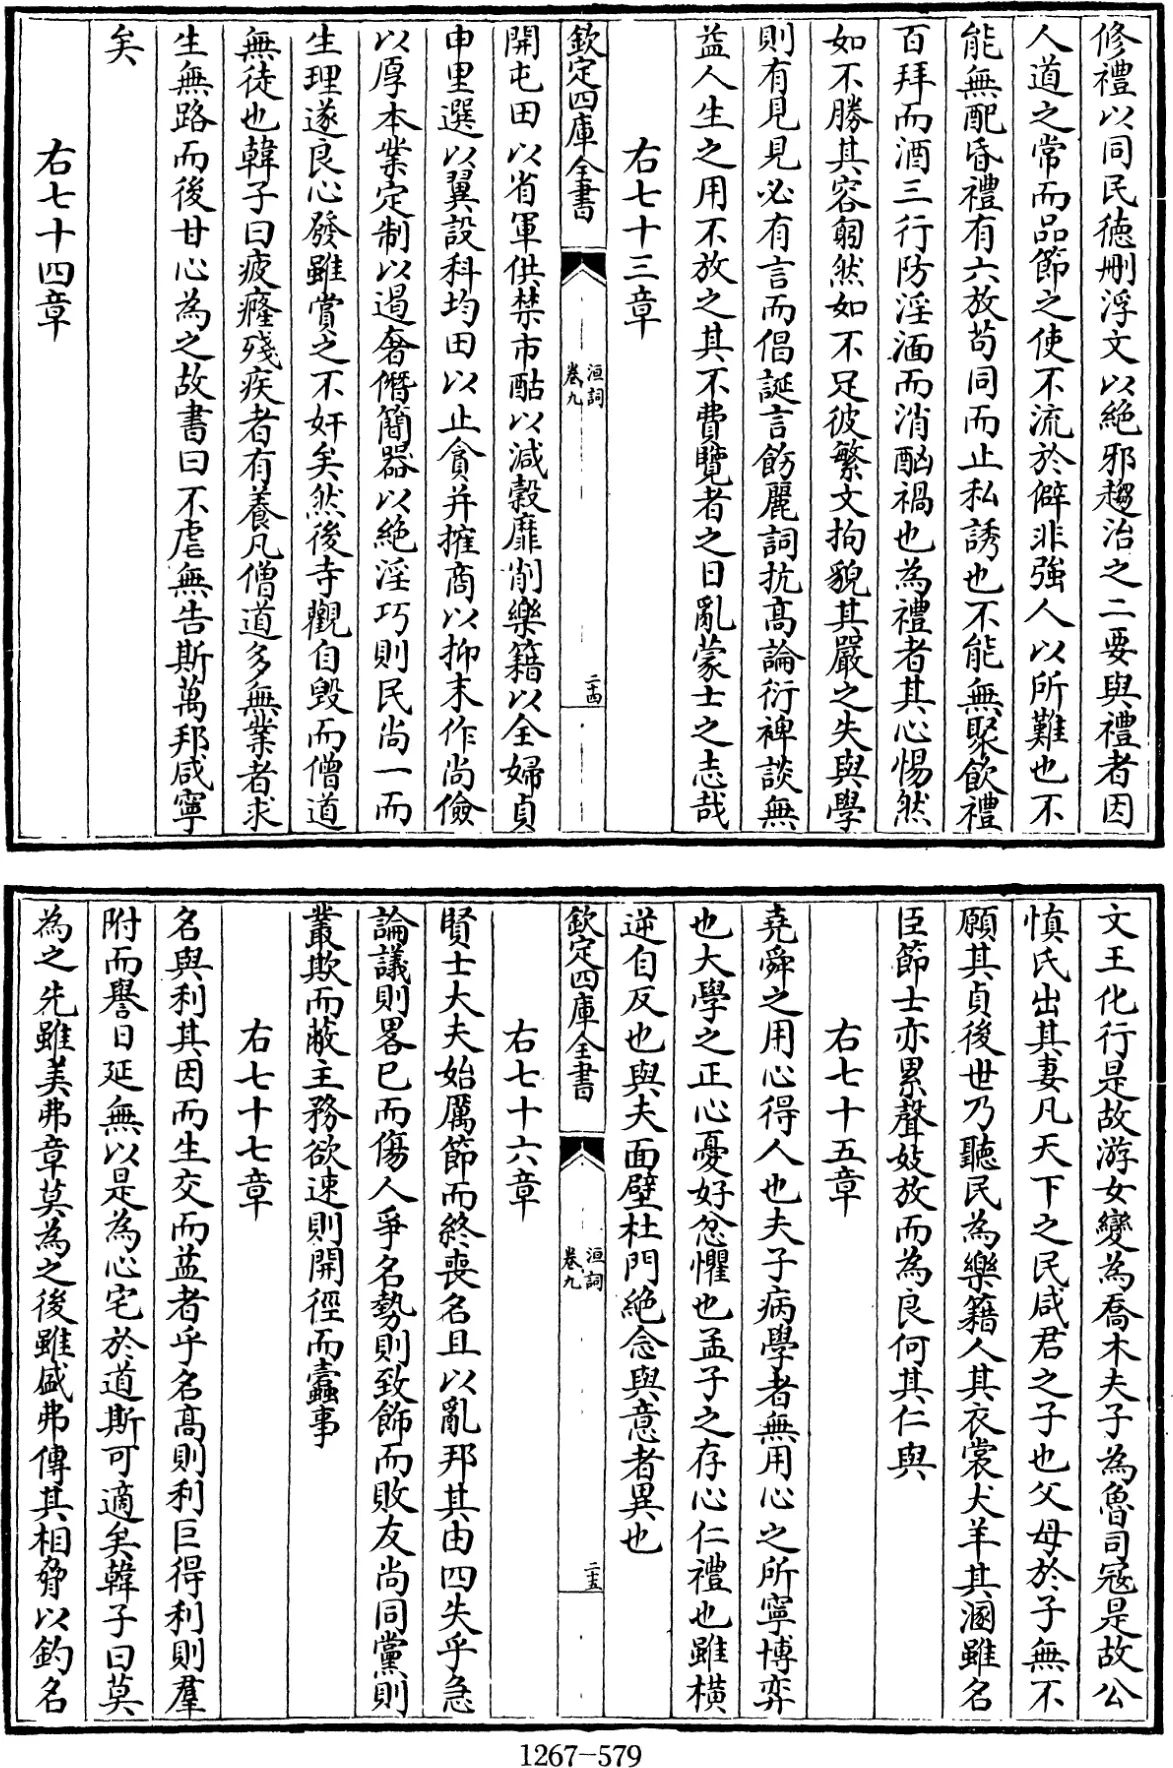 修禮以同民徳刪浮文以絶邪趨治之二要與禮者因
人道之常而品節之使不流於僻非強人以所難也不
能無配昏禮有六放茍同而止私誘也不能無聚飲禮
百拜而酒三行防淫湎而消酗禍也為禮者其心惕然
如不勝其容匔然如不足彼繁文拘貌其嚴之失與學
則有見見必有言而倡誕言飭麗詞抗髙論衍裨談無
益人生之用不放之其不費覽者之日亂蒙士之志哉
右七十三章
欽定四庫全書
洹詞
卷九
二十四
開屯田以省軍供禁市酤以減穀靡削樂籍以全婦貞
申里選以翼設科均田以止貪并搉商以抑末作尚儉
以厚本業定制以遏奢僭簡器以絶淫巧則民尚一而
生理遂良心發雖賞之不奸矣然後寺觀自毁而僧道
無徒也韓子曰疲癃殘疾者有養凡僧道多無業者求
生無路而後甘心為之故書曰不虐無告斯萬邦咸寧
矣
右七十四章
文王化行是故游女變為喬木夫子為魯司寇是故公
慎氏出其妻凡天下之民咸君之子也父母於子無不
願其貞後世乃聽民為樂籍人其衣裳犬羊其溷雖名
臣節士亦累聲妓放而為良何其仁與
右七十五章
堯舜之用心得人也夫子病學者無用心之所寧博弈
也大學之正心憂好忿懼也孟子之存心仁禮也雖横
逆自反也與夫面壁杜門絶念與意者異也
欽定四庫全書
洹詞
卷九
二十五
右七十六章
賢士大夫始厲節而終喪名且以亂邦其由四失乎急
論議則畧已而傷人爭名勢則致飾而敗友尚同黨則
叢欺而蔽主務欲速則開徑而蠹事
右七十七章
名與利其因而生交而益者乎名髙則利巨得利則羣
附而譽日延無以是為心宅於道斯可適矣韓子曰莫
為之先雖美弗章莫為之後雖盛弗傳其相脅以釣名
1267-579